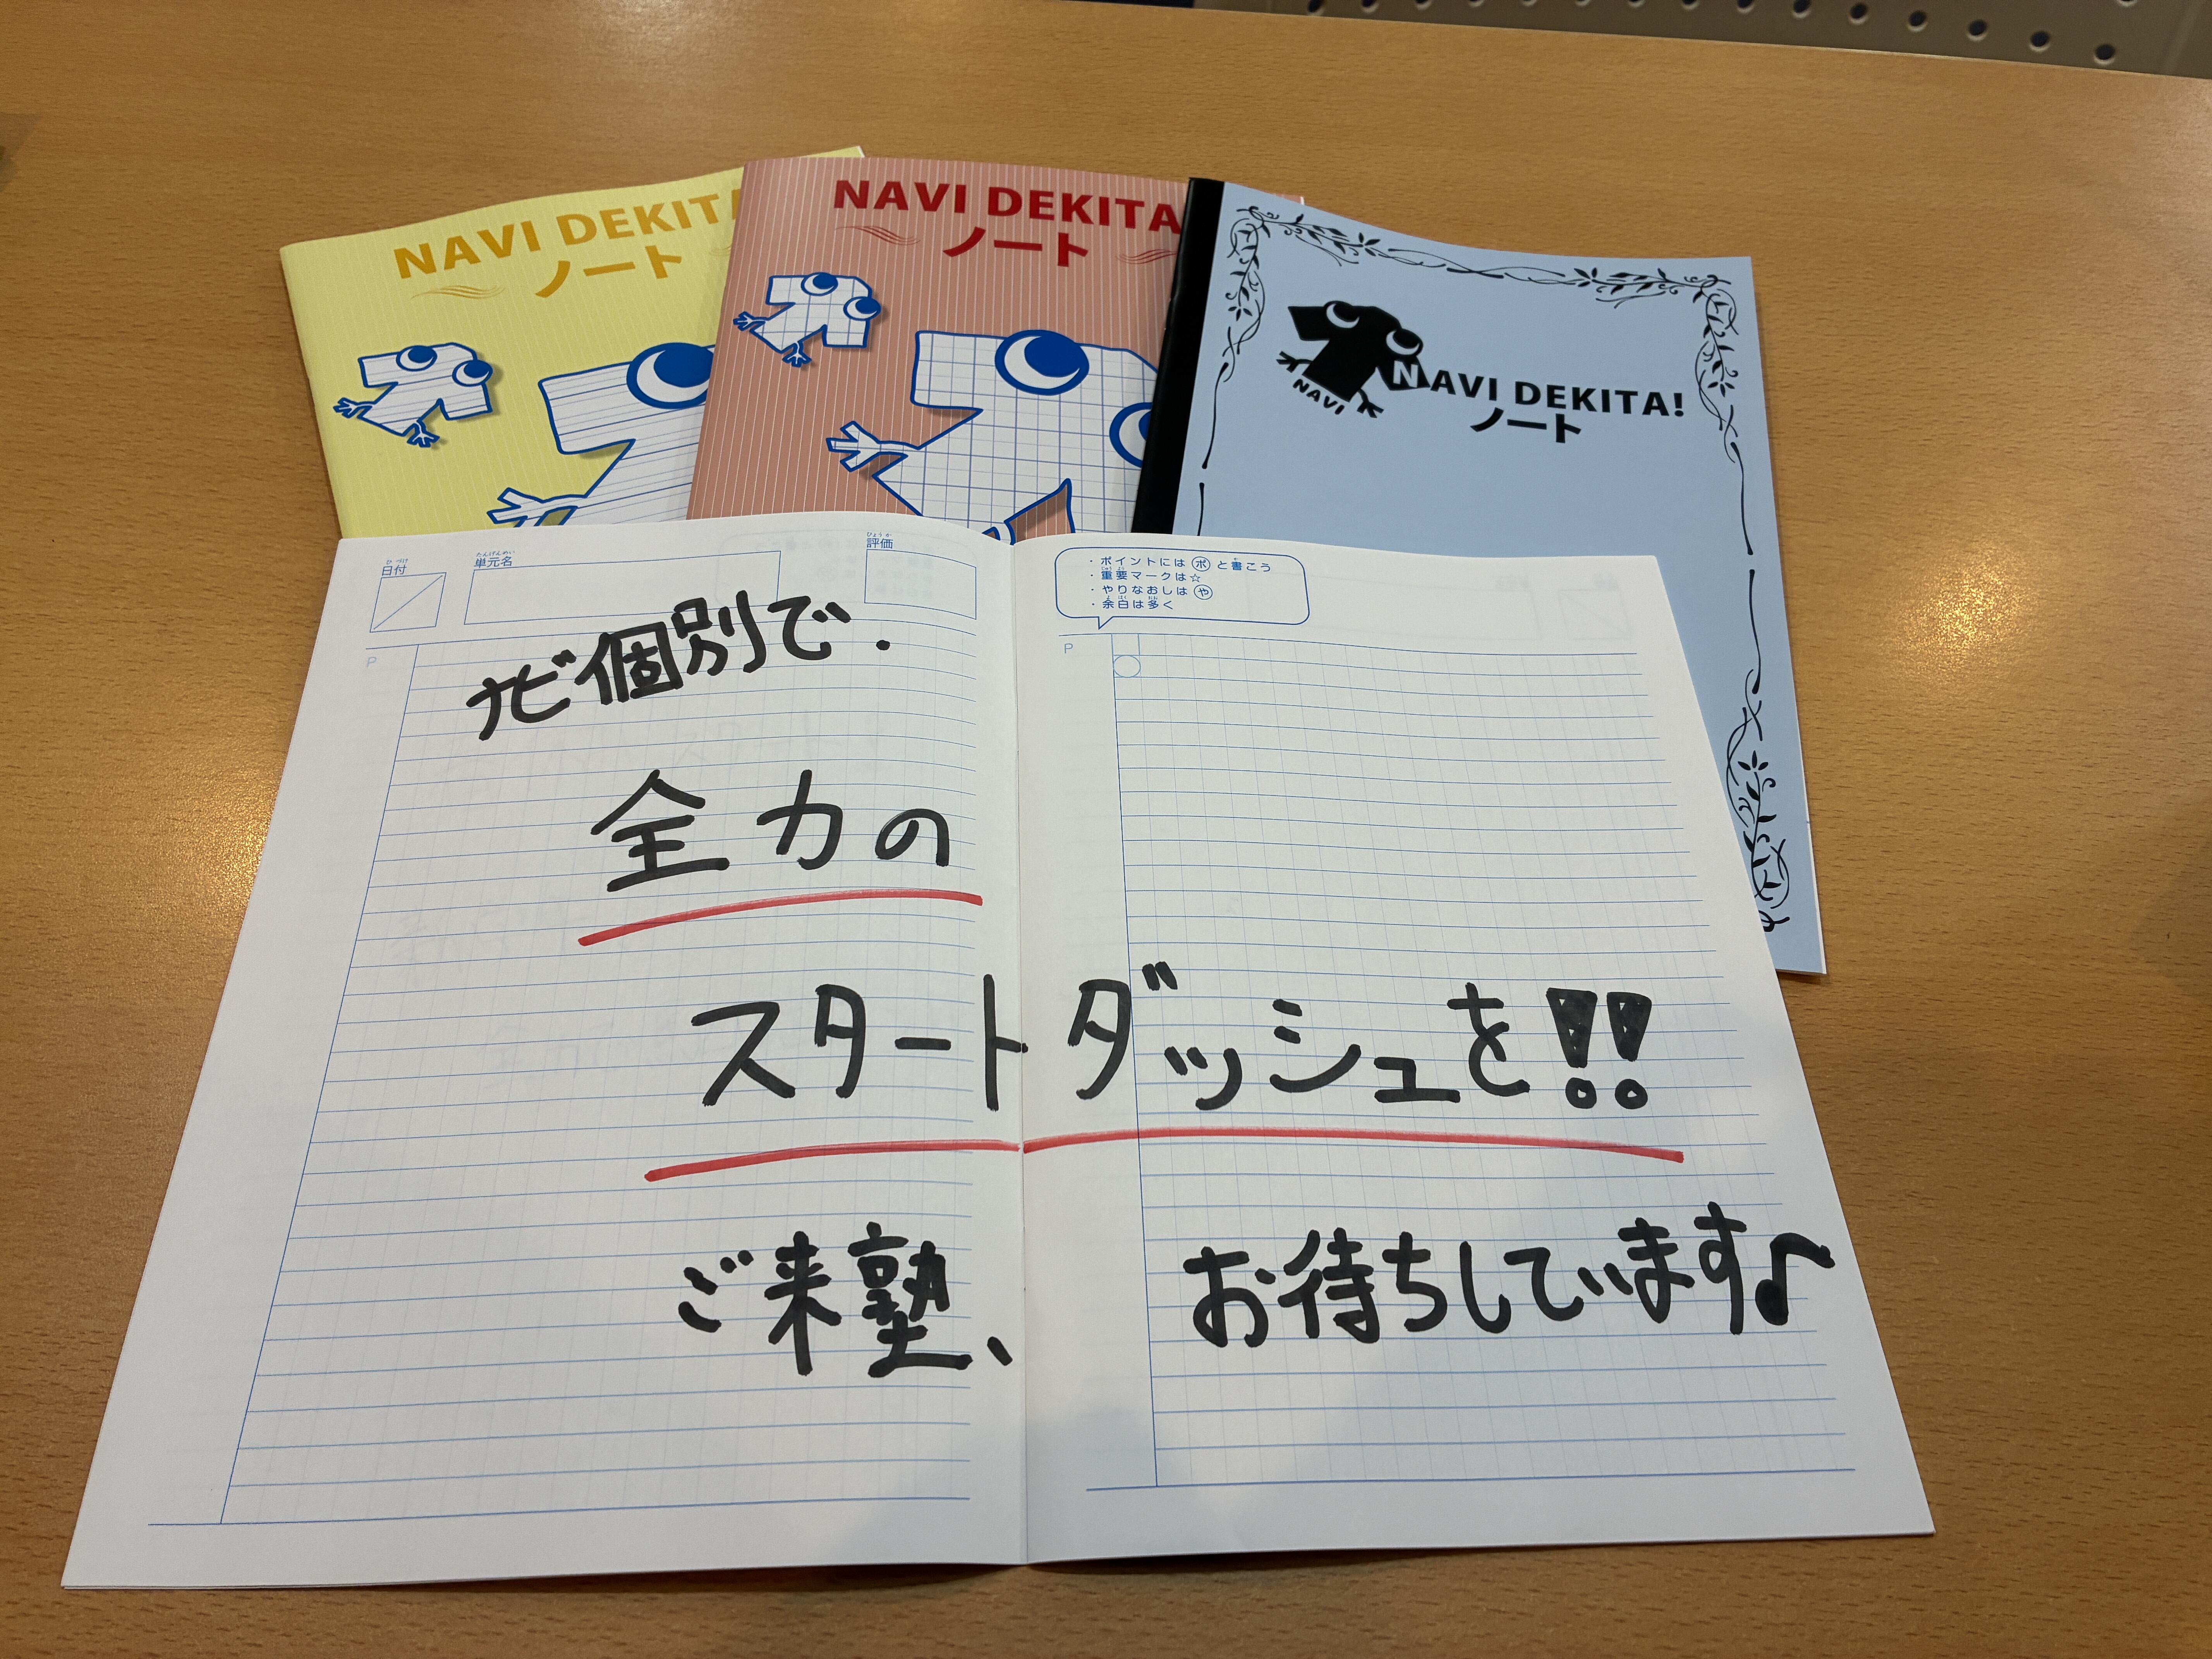 NAVI DEKITA
ノート
NAVI DEKITA
ノート
NAVI
NAVI DEKITA!
ノート
ひづけ
日付
たんげんめい
単元名
ひょうか
評価
・ポイントには ポ と書こう
・重要マークは☆
・やりなおしは や
・余白は多く
P
P
ナビ個別で.
全力の
スタートダッシュを!!
ご来塾、お待ちしています♪